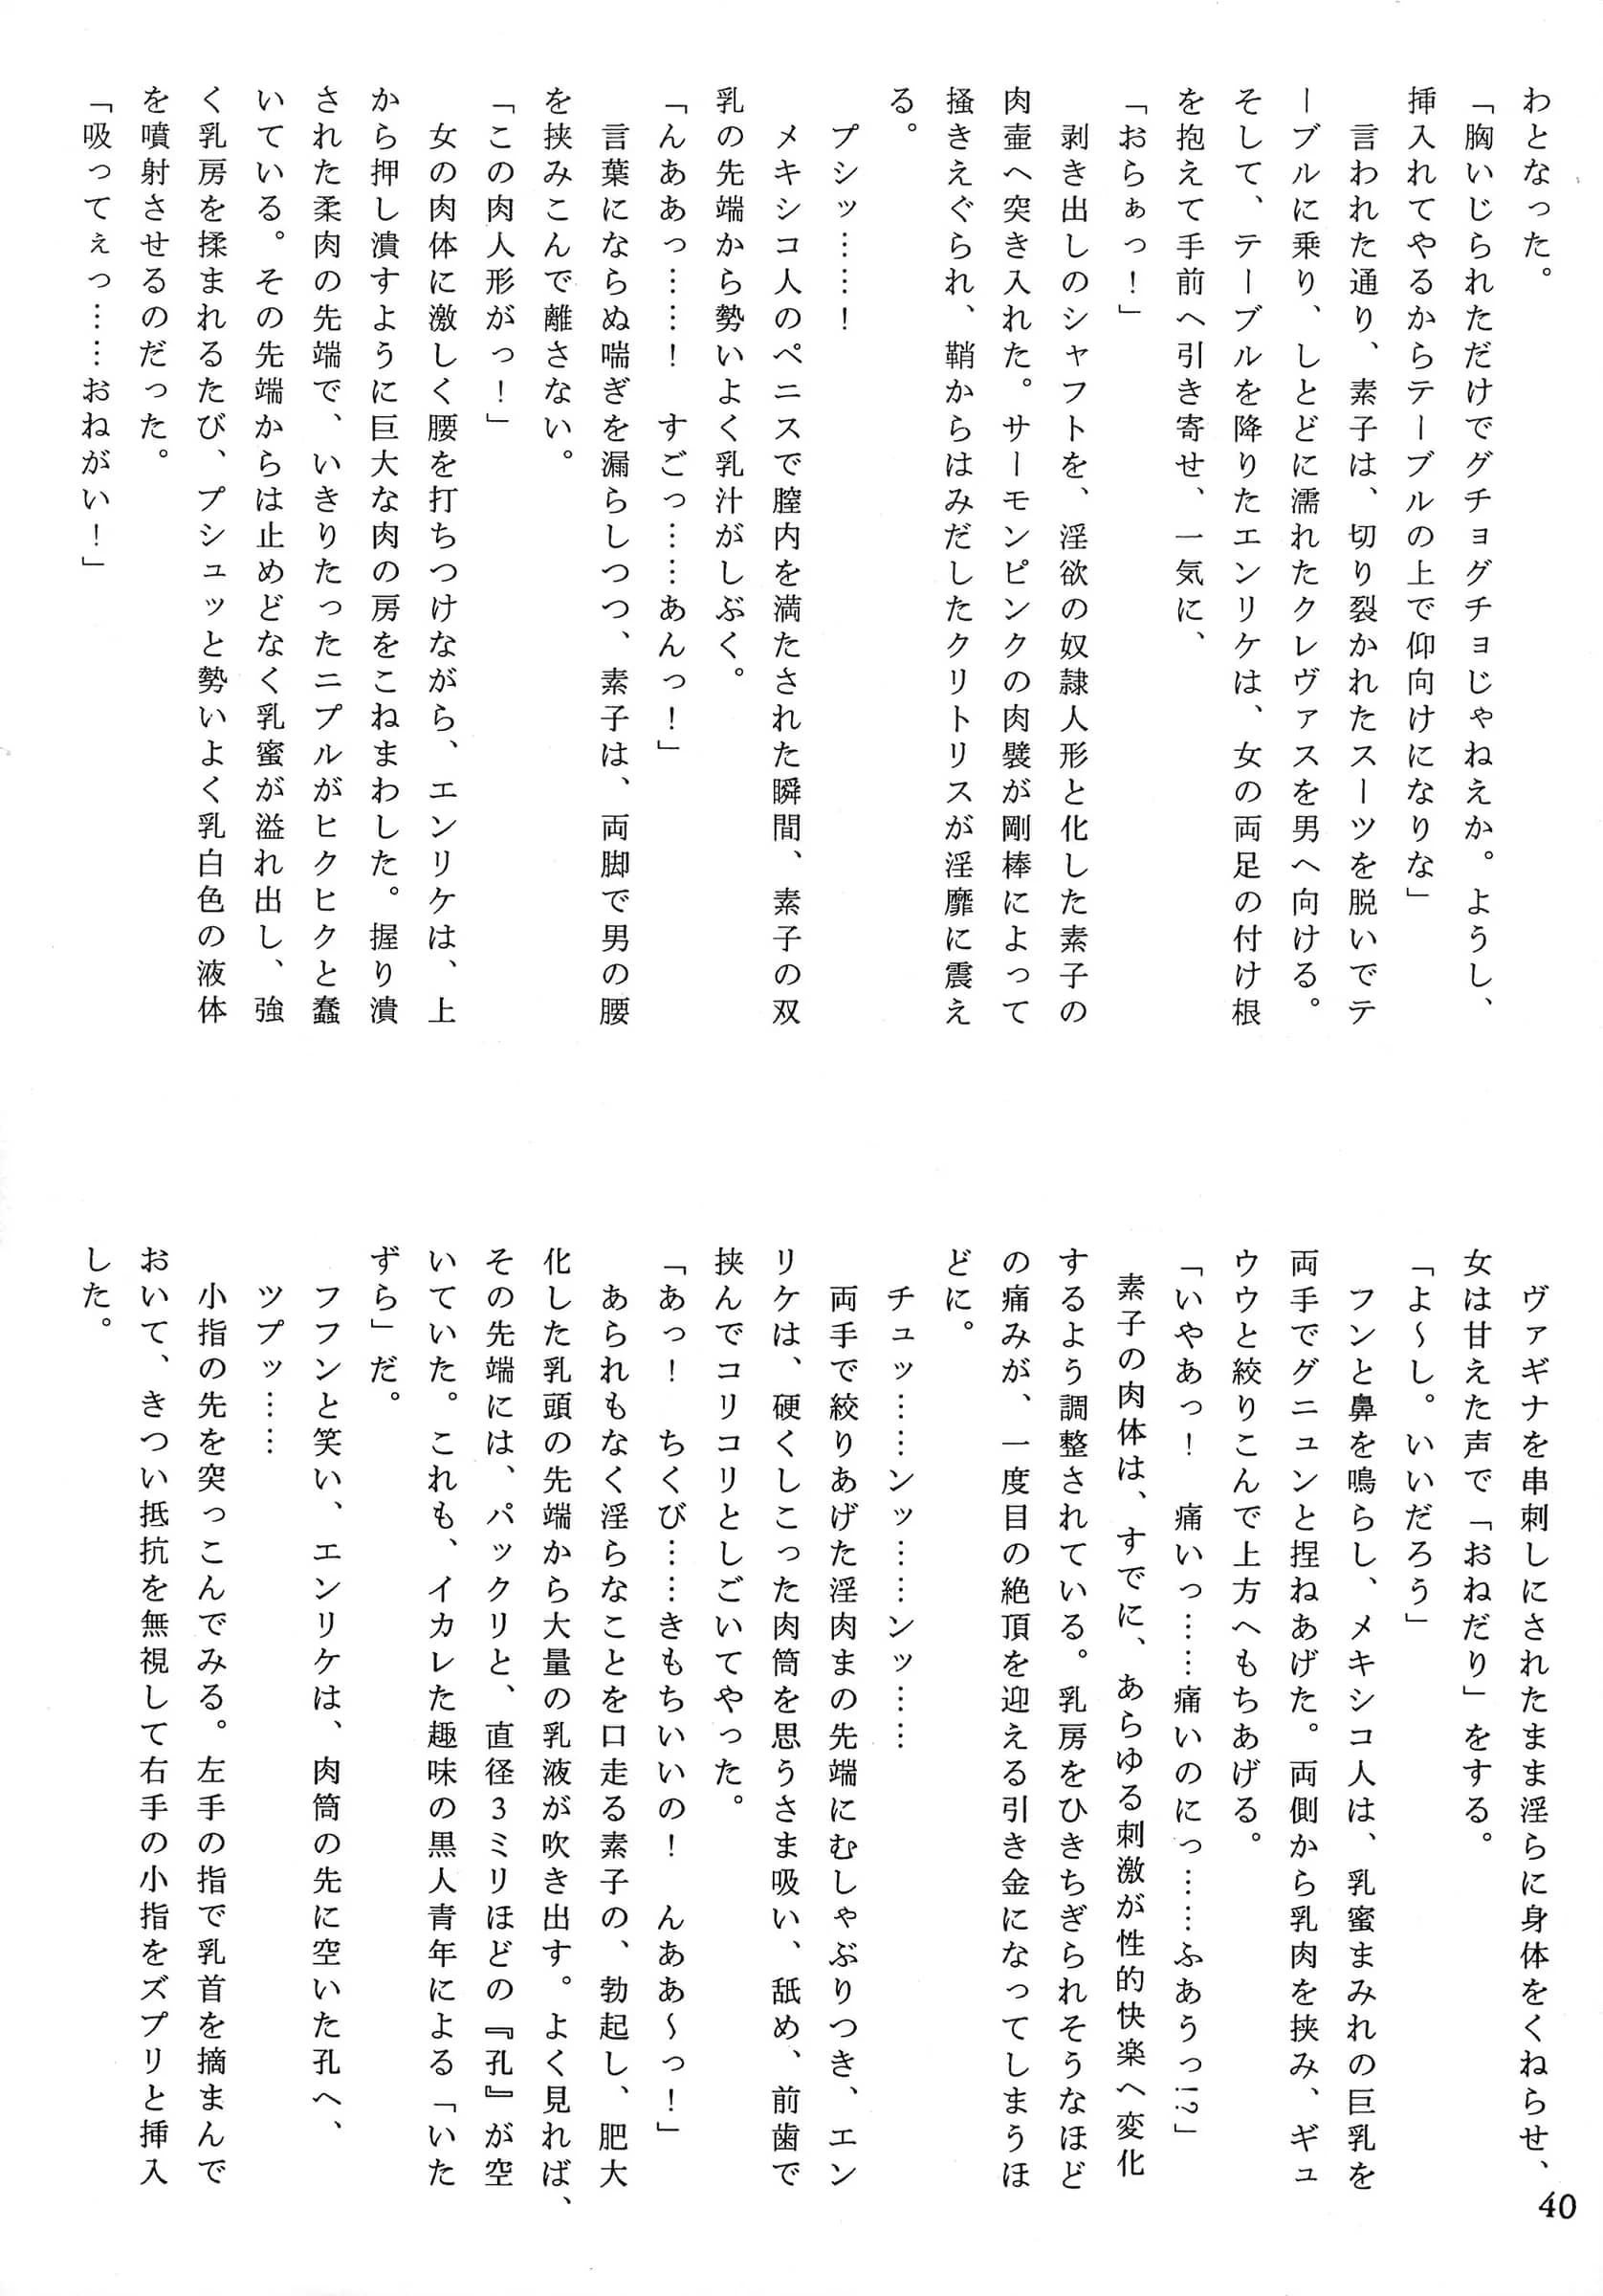 わとなった。
「胸いじられただけでグチョグチョじゃねえか。ようし、
挿入れてやるからテーブルの上で仰向けになりな」
言われた通り、素子は、切り裂かれたスーツを脱いでテ
ーブルに乗り、しとどに濡れたクレヴァスを男へ向ける。
そして、テーブルを降りたエンリケは、女の両足の付け根
を抱えて手前へ引き寄せ、一気に、
「おらぁっ！」
剥き出しのシャフトを、淫欲の奴隷人形と化した素子の
肉壷へ突き入れた。サーモンピンクの肉襞が剛棒によって
掻きえぐられ、鞘からはみだしたクリトリスが淫靡に震え
る。
プシッ……！
メキシコ人のペニスで膣内を満たされた瞬間、素子の双
乳の先端から勢いよく乳汁がしぶく。
「んああっ……！　すごっ……あんっ！」
言葉にならぬ喘ぎを漏らしつつ、素子は、両脚で男の腰
を挟みこんで離さない。
「この肉人形がっ！」
女の肉体に激しく腰を打ちつけながら、エンリケは、上
から押し潰すように巨大な肉の房をこねまわした。握り潰
された柔肉の先端で、いきりたったニプルがヒクヒクと蠢
いている。その先端からは止めどなく乳蜜が溢れ出し、強
く乳房を揉まれるたび、プシュッと勢いよく乳白色の液体
を噴射させるのだった。
「吸ってぇっ……おねがい！」
ヴァギナを串刺しにされたまま淫らに身体をくねらせ、
女は甘えた声で「おねだり」をする。
「よ～し。いいだろう」
フンと鼻を鳴らし、メキシコ人は、乳蜜まみれの巨乳を
両手でグニュンと捏ねあげた。両側から乳肉を挟み、ギュ
ウウと絞りこんで上方へもちあげる。
「いやあっ！　痛いっ……痛いのにっ……ふあうっ!?」
素子の肉体は、すでに、あらゆる刺激が性的快楽へ変化
するよう調整されている。乳房をひきちぎられそうなほど
の痛みが、一度目の絶頂を迎える引き金になってしまうほ
どに。
チュッ……ンッ……ンッ……
両手で絞りあげた淫肉まの先端にむしゃぶりつき、エン
リケは、硬くしこった肉筒を思うさま吸い、舐め、前歯で
挟んでコリコリとしごいてやった。
「あっ！　ちくび……きもちいいの！　んああ～っ！」
あられもなく淫らなことを口走る素子の、勃起し、肥大
化した乳頭の先端から大量の乳液が吹き出す。よく見れば、
その先端には、パックリと、直径３ミリほどの『孔』が空
いていた。これも、イカレた趣味の黒人青年による「いた
ずら」だ。
フフンと笑い、エンリケは、肉筒の先に空いた孔へ、
ツプッ……
小指の先を突っこんでみる。左手の指で乳首を摘まんで
おいて、きつい抵抗を無視して右手の小指をズプリと挿入
した。
40